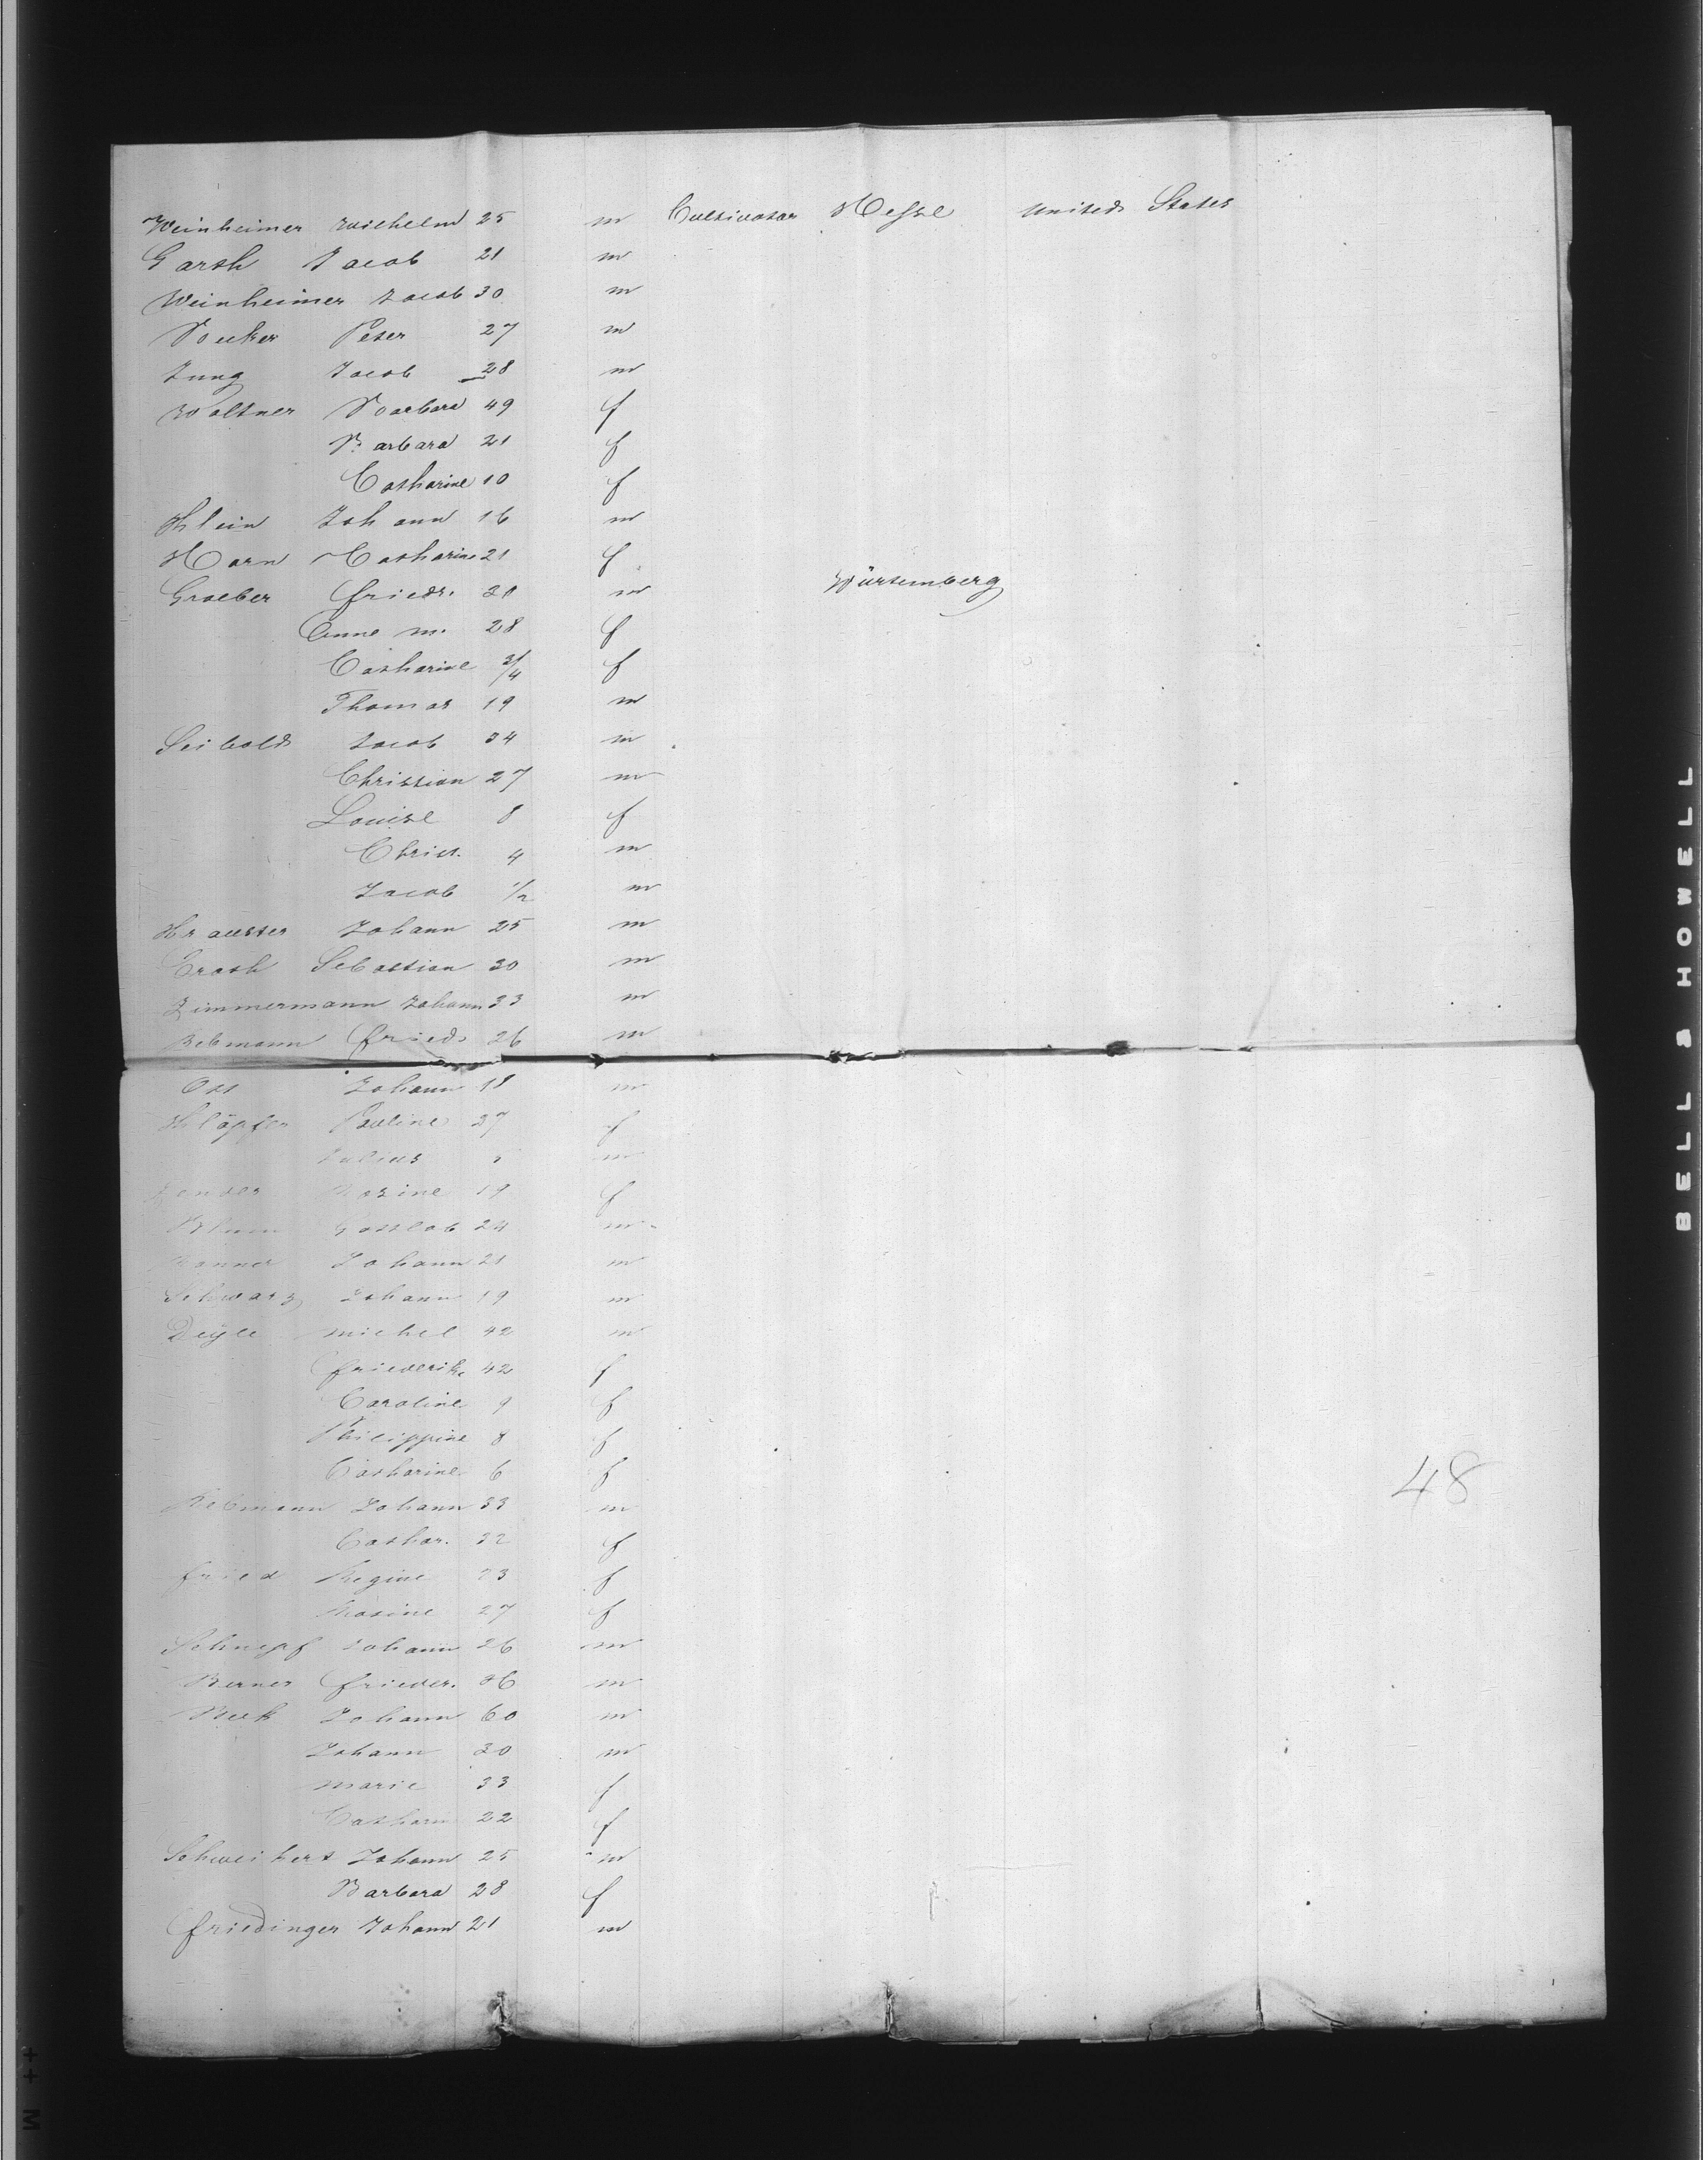 Weinheimer Wilhelm 25 m Cultivator Hesse United States
Garth Jacob 21 m
Weinheimer Jacob 30 m
Becker Peter 27 m
Jung Jacob 28 m
Waltner Barbara 49 f
Barbara 21 f
Catharine 10 f
Klein Johann 16 m
Horn Catharine 21 f
Graeber Friedr. m Würtemberg
Anna M. 28 f
Catharine 3/4 f
Thomas 19 m
Seibold Jacob 34 m
Christian 27 m
Louise 8 f
Christ. 4 m
Jacob 1/2 m
Johann 25 m
Sebastian 30 m
Zimmermann Johann 33 m
Rebmann Fried. 26 m
Ott Johann 18 m
Klöpfer Pauline 27 f
Julius m
Rosine 19 f
Blum Gottlob 24 m
Johann 21 m
Schwarz Johann 19 m
Deyle Michel 42 m
Friederike 42 f
Caroline 9 f
Philippine 8 f
Catharine 6 f
Rebmann Johann 33 m
Cathar. 32 f
Fried Regine f
Rosine 27 f
Schnepf Johann 26 m
Berner Frieder. 36 m
Beck Johann 60 m
Johann 30 m
Marie 33 f
Catharin 22 f
Schweikert Johann 25 m
Barbara 28 f
Friedinger Johann 21 m
48
BELL & HOWELL